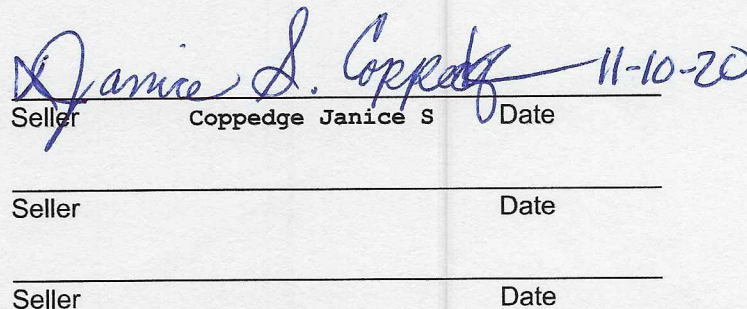 Janice S. Coppedge 11-10-20
Seller Coppedge Janice S Date
Seller Date
Seller Date